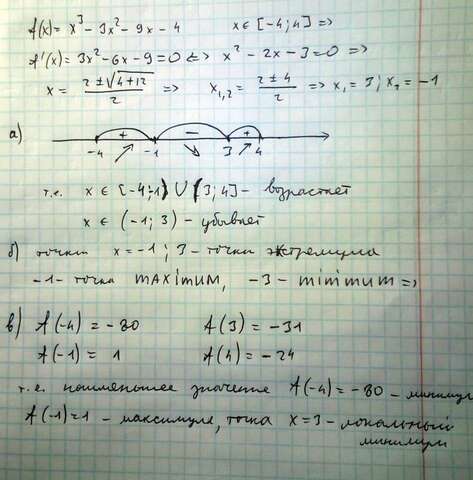 f(x) = x³ - 3x² - 9x - 4 x ∈ [-4; 4] =>
f'(x) = 3x² - 6x - 9 = 0 <=> x² - 2x - 3 = 0 =>
x = (2 ± √(4+12))/2 => x₁,₂ = (2 ± 4)/2 => x₁ = 3; x₂ = -1
а) + − +
-4 -1 3 4
т.е. x ∈ [-4;-1) ∪ (3; 4] - возрастает
x ∈ (-1; 3) - убывает
б) точки x = -1; 3 - точки экстремума
-1 - точка maximum, -3 - minimum =>
в) f(-4) = -80 f(3) = -31
f(-1) = 1 f(4) = -24
т.е. наименьшее значение f(-4) = -80 - минимум
f(-1) = 1 - максимум, точка x = 3 - локальный
минимум